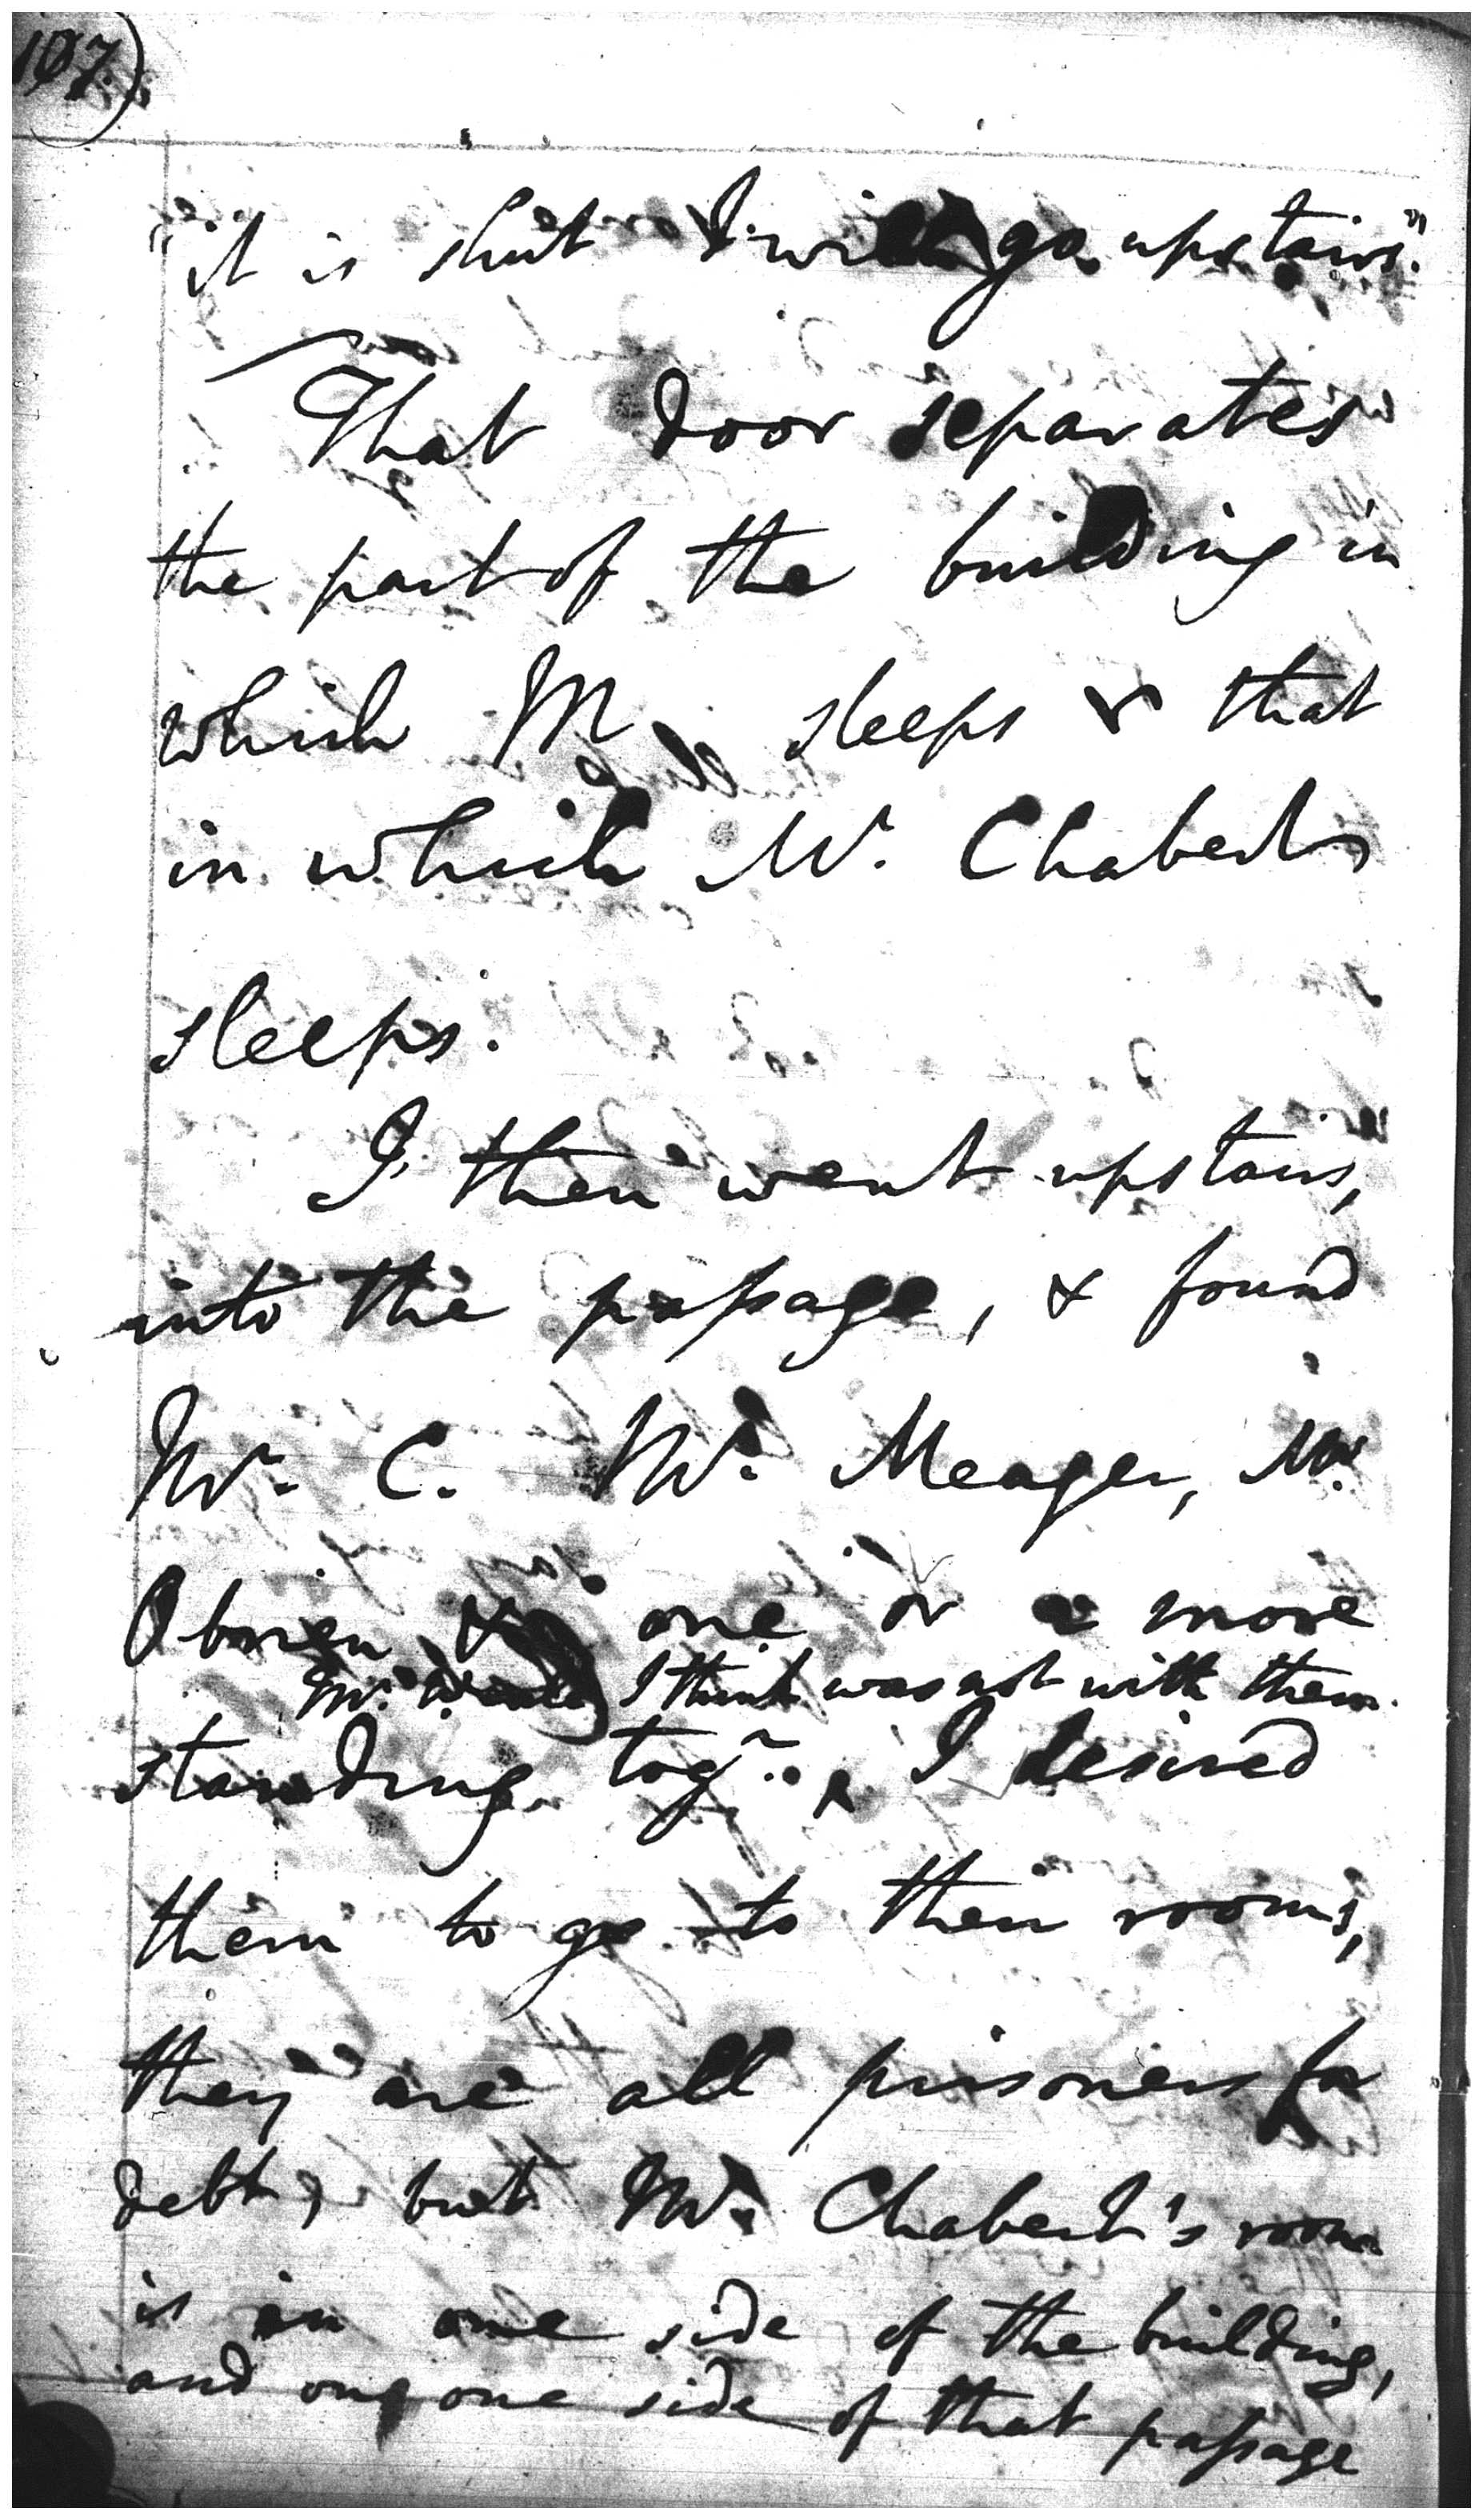 107
"it is shut I will go upstairs."
That door separates
the part of the building in
which M sleeps & that
in which Mr. Chabert
sleeps.
I then went upstairs,
into the passage, & found
Mr. C. Mr. Meager, Mr.
Obrien & one or more
Mr. I think was not with them.
standing togr. I desired
them to go to their rooms,
they are all prisoners for
debt, but Mr. Chabert's room
is in one side of the building,
and on one side of that passage